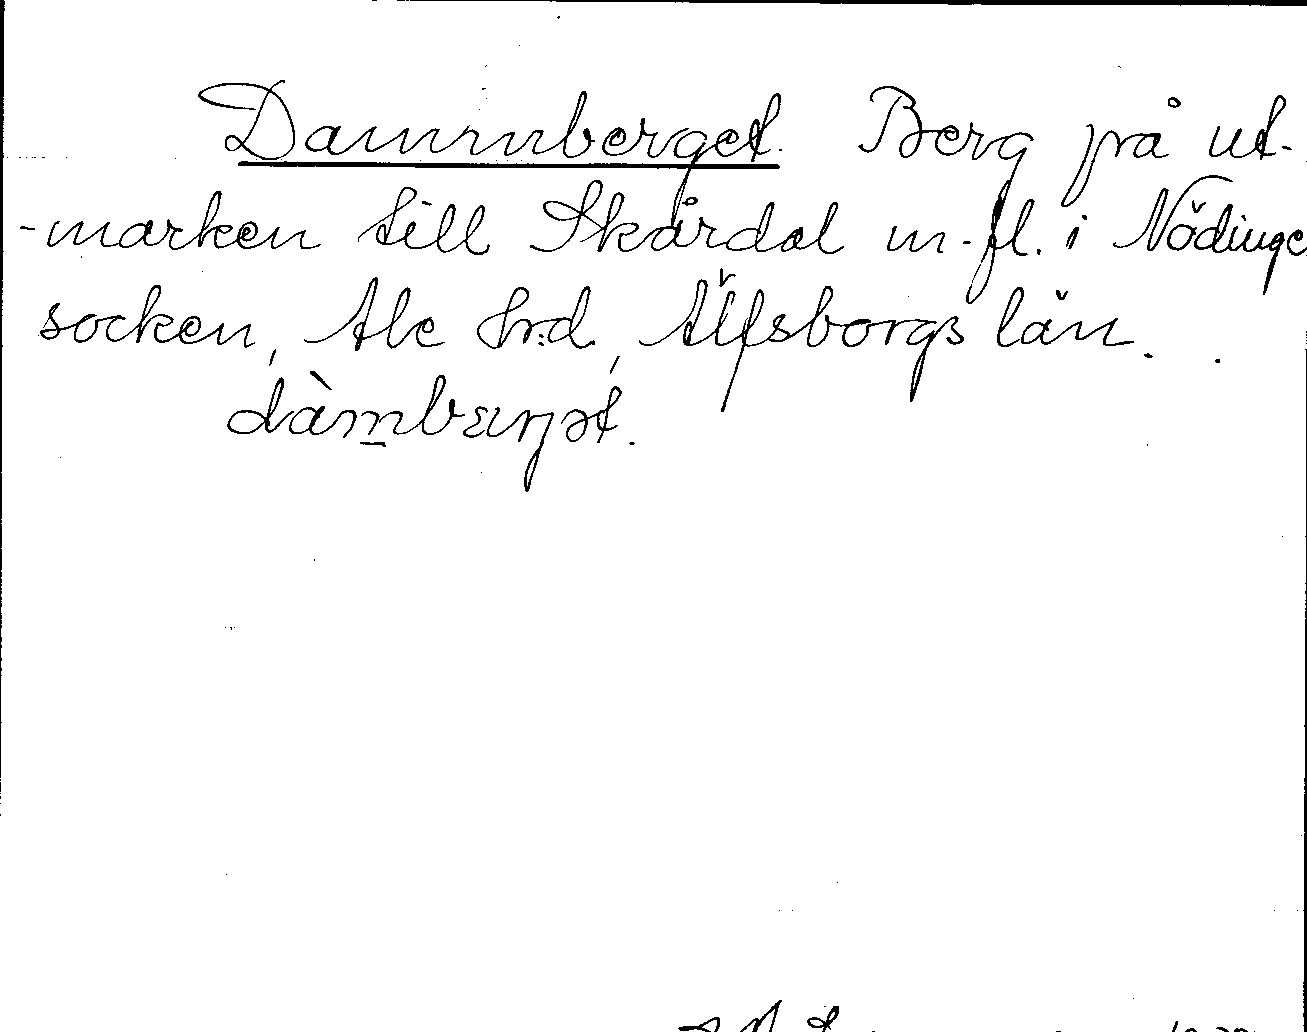 Dammberget. Berg på ut-
-marken till Skårdal m.fl. i Nödinge
socken, Ale hrd, Älfsborgs län.
dàm̲bærjət.